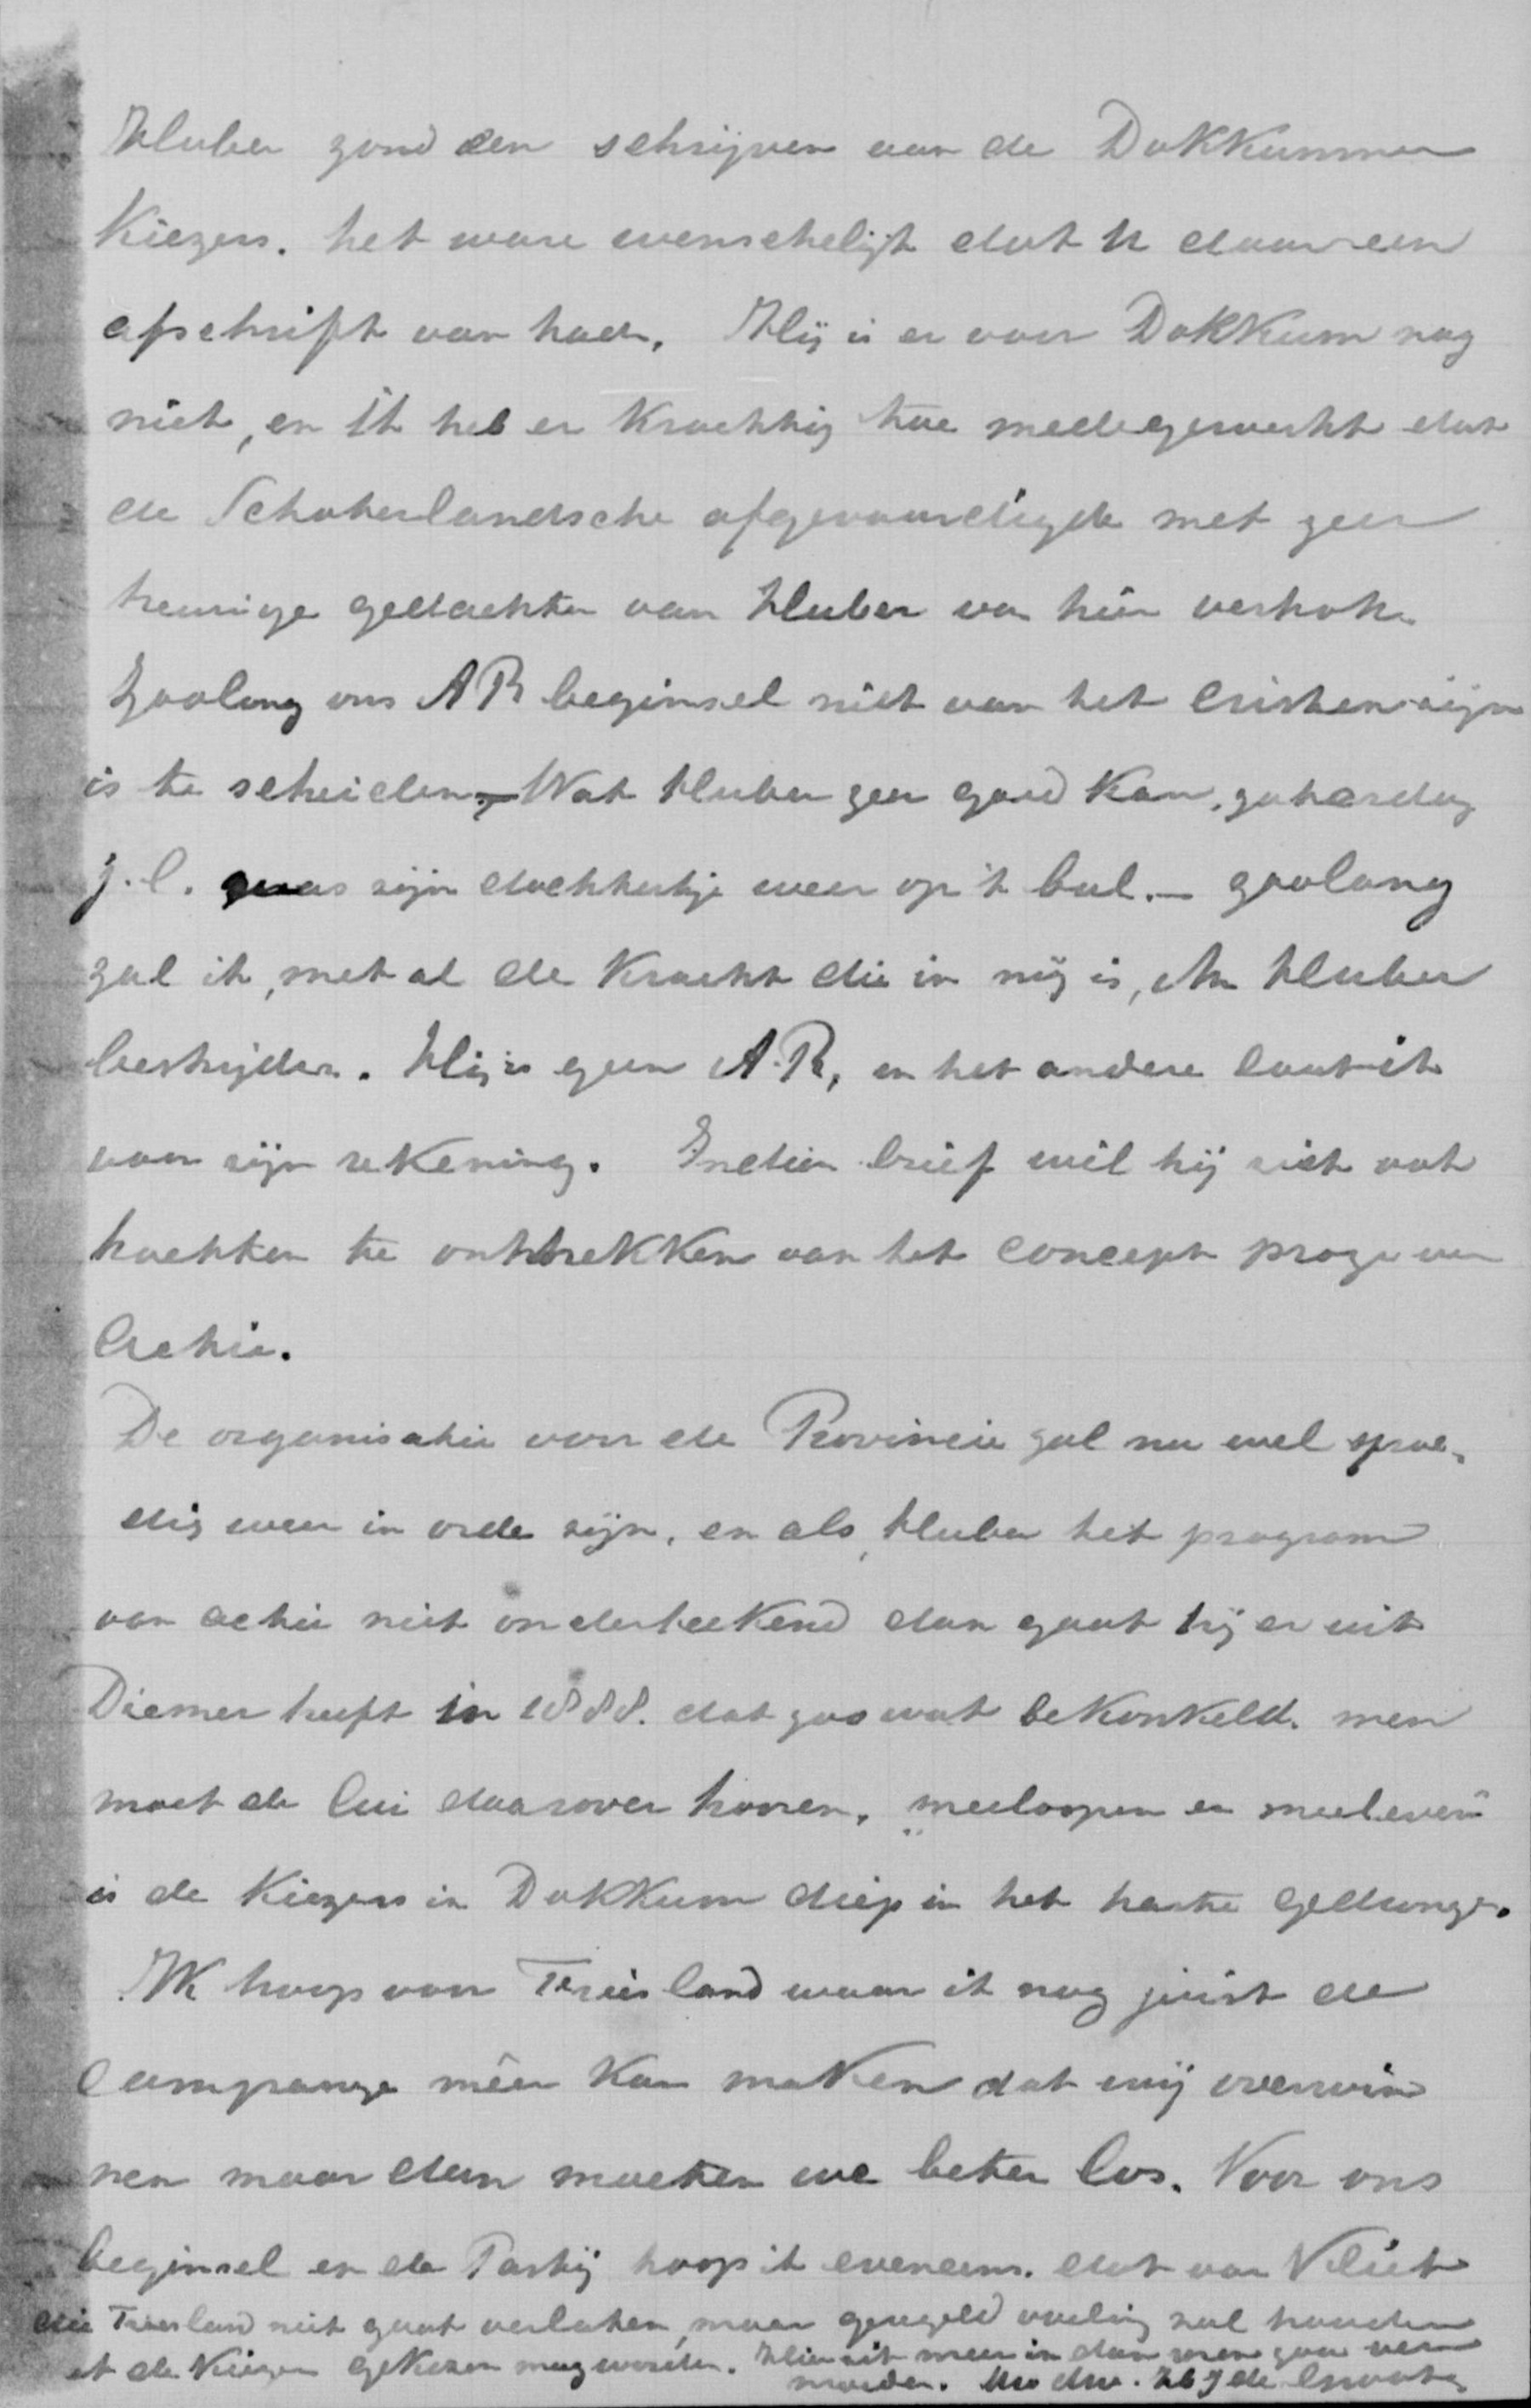 Huber zond een schrijven aan de Dokkummer
Kiezers. het ware wenschelijk dat U daar een
afschrift van hadt. Hij is er voor Dokkum nog
niet, en ik heb er krachtig toe medegewerkt dat
de Schoterlandsche afgevaardigde met geen
heurige gedachten van Huber van hier vertrok.
Zoolang ons AR beginsel niet van het Cristen zijn
is te scheiden, – Wat Huber zeer goed kan, zaterdag
j.l. was zijn dochtertje weer op 't bal. – zoolang
zal ik, met al de kracht die in mij is, Mr Huber
bestrijden. Hij is geen A.R, en het andere laat ik
voor zijn rekening. In dien brief wil hij zich ook
trachten te onttrekken van het concept progr van
Actie.
De organisatie voor de Provincie zal nu wel spoe-
dig weer in orde zijn, en als Huber het program
van actie niet onderteekend dan gaat hij er uit
Diemer heeft in 1888. dat zoo wat bekonkeld. men
moet de lui daarover hooren. "meeloopen en meeleven"
is de Kiezers in Dokkum diep in het harte gedrongen.
Ik hoop voor Friesland waar ik nog juist de
Campange mêer kan maken dat wij overwin
nen maar dan moeten we beter los. Voor ons
beginsel en de Partij hoop ik eveneens. dat van Vliet
die Friesland niet gaat verlaten, maar geregeld voeling zal houden
met de Kiezers gekozen mag worden. Hier zit meer in dan men zou ver
moeden. Uw dw. de Groot